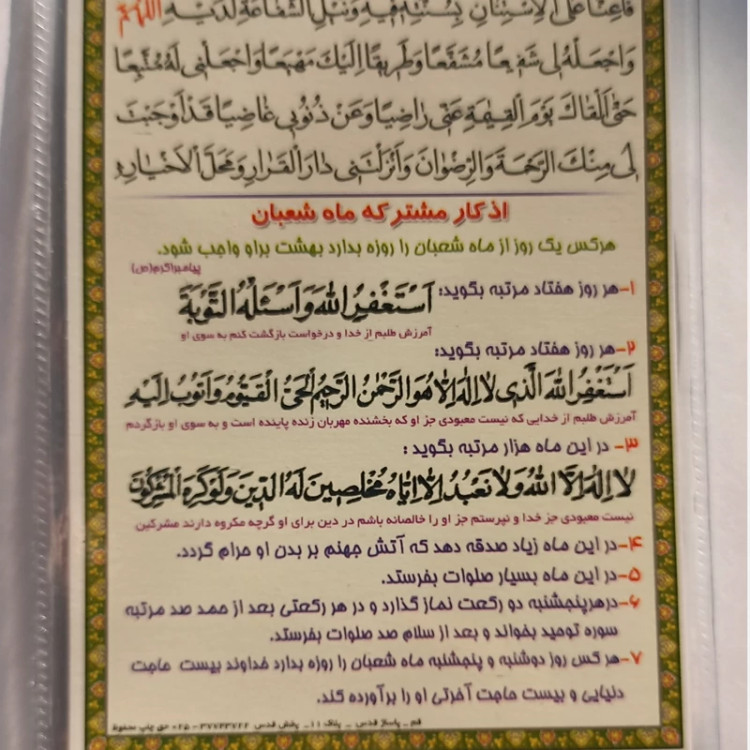 فَاَعِنَّا عَلَى الْاِسْتِنَانِ بِسُنَّتِهِ فِيهِ وَنَيْلِ الشَّفَاعَةِ لَدَيْهِ اَللّٰهُمَّ
وَاجْعَلْهُ لِى شَفِيعًا مُشَفَّعًا وَطَرِيقًا اِلَيْكَ مَهْيَعًا وَاجْعَلْنِى لَهُ مُتَّبِعًا
حَتّٰى اَلْقَاكَ يَوْمَ الْقِيٰمَةِ عَنِّى رَاضِيًا وَعَنْ ذُنُوبِى غَاضِيًا قَدْ اَوْجَبْتَ
لِى مِنْكَ الرَّحْمَةَ وَالرِّضْوَانَ وَاَنْزَلْتَنِى دَارَ الْقَرَارِ وَمَحَلَّ الْاَخْيَارِ
اذکار مشترکه ماه شعبان
هرکس یک روز از ماه شعبان را روزه بدارد بهشت براو واجب شود.
پیامبراکرم(ص)
۱-هر روز هفتاد مرتبه بگوید: اَسْتَغْفِرُ اللهَ وَاَسْئَلُهُ التَّوْبَةَ
آمرزش طلبم از خدا و درخواست بازگشت کنم به سوی او
۲-هر روز هفتاد مرتبه بگوید:
اَسْتَغْفِرُ اللهَ الَّذِى لَا اِلٰهَ اِلَّا هُوَ الرَّحْمٰنُ الرَّحِيمُ الْحَىُّ الْقَيُّومُ وَاَتُوبُ اِلَيْهِ
آمرزش طلبم از خدایی که نیست معبودی جز او که بخشنده مهربان زنده پاینده است و به سوی او بازگردم
۳- در این ماه هزار مرتبه بگوید :
لَا اِلٰهَ اِلَّا اللهُ وَلَا نَعْبُدُ اِلَّا اِيَّاهُ مُخْلِصِينَ لَهُ الدِّينَ وَلَوْ كَرِهَ الْمُشْرِكُونَ
نیست معبودی جز خدا و نپرستم جز او را خالصانه باشم در دین برای او گرچه مکروه دارند مشرکین
۴-در این ماه زیاد صدقه دهد که آتش جهنم بر بدن او حرام گردد.
۵-در این ماه بسیار صلوات بفرستد.
۶-درهرپنجشنبه دو رکعت نماز گذارد و در هر رکعتی بعد از حمد صد مرتبه
سوره توحید بخواند و بعد از سلام صد صلوات بفرستد.
۷-هر کس روز دوشنبه و پنجشنبه ماه شعبان را روزه بدارد خداوند بیست حاجت
دنیایی و بیست حاجت آخرتی او را برآورده کند.
قم _ پاساژ قدس _ پلاک ۱۱_ پخش قدس ۳۷۷۴۳۷۲۲-۰۲۵ حق چاپ محفوظ